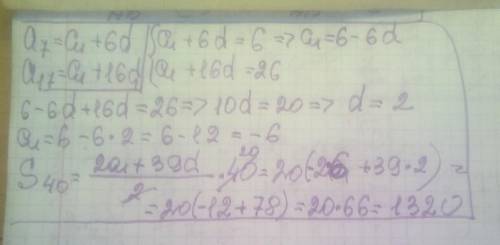 a₇=a₁+6d {a₁+6d=6=>a₁=6-6d
a₁₇=a₁+16d {a₁+16d=26
6-6d+16d=26=>10d=20=>d=2
a₁=6-6·2=6-12=-6
S₄₀=(2a₁+39d)/2·40=20(-2·6+39·2)=
=20(-12+78)=20·66=1320